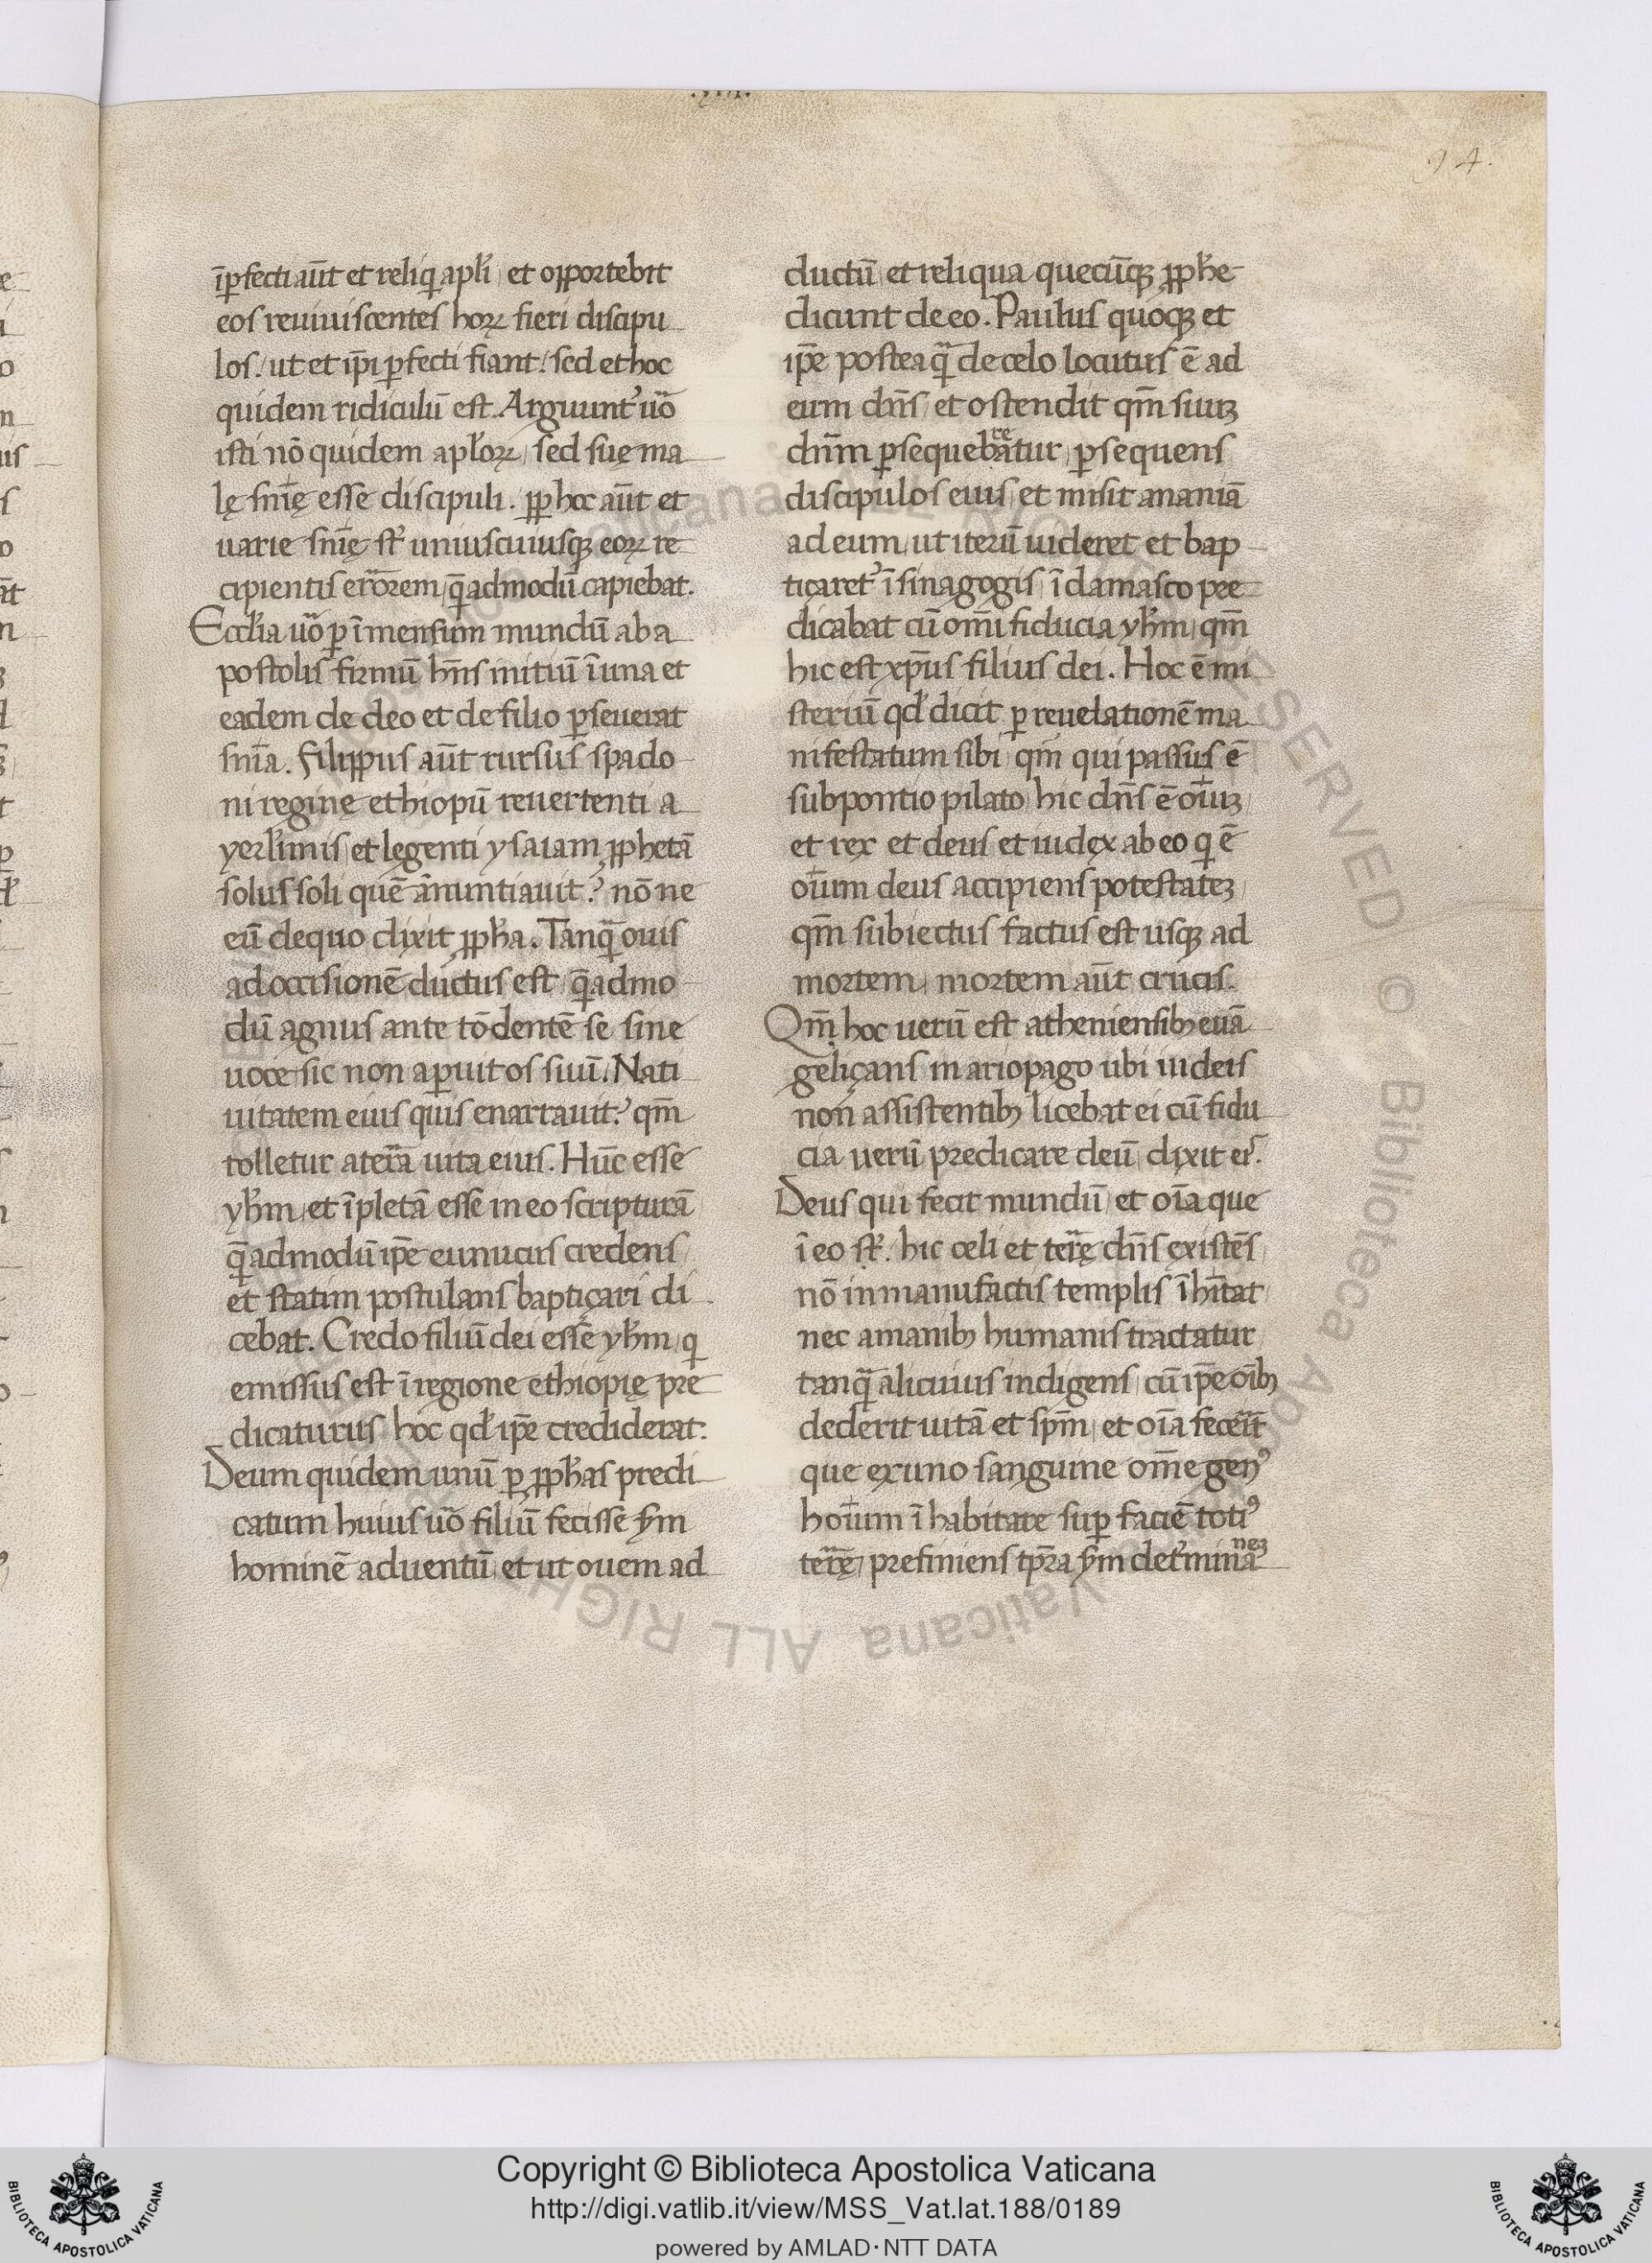 .xiii.
94.
īp̲fecti aūt et reliq apl̄i et opportebit
eos reuiuiscentes hoꝝ fieri discipu
los. ut et ip̄i ꝑfecti fiant. sed et hoc
quidem ridiculū est. Arguunt᷒ uō
isti nō quidem apl̄oꝝ sed suę ma
lę sn̄ię esse discipuli. ꝓphoc aūt et
uarie sn̄ię sƚ uniuscuiusqꝫ eoꝝ re
cipientis erōrem q̄admodū capiebat.
Eccl̄ia uō ꝑ īmensum mundū ab a
postolis firmū hn̄s initiū ī una et
eadem de deo et de filio ꝑseuerat
sn̄ia. Filippus aūt rursus spado
ni reginę ethiopū reuertenti a
yerl̄imis et legenti ysaiam ꝓphetā
solus soli quē ānuntiauit? nō ne
eū de quo dixit ꝓph̄a. Tanq̄ ouis
ad occisionē ductus est q̄admo
dū agnus ante tōdentē se sine
uoce sic non aperuit os suū. Nati
uitatem eius quis enarrauit? qm̄
tolletur a terā uita eius. Hūc esse
yh̄m et īpletā esse in eo scripturā
q̄admodū ip̄e eunucus credens
et statim postulans baptiçari di
cebat. Credo filiū dei esse yh̄m q
emissus est ī regione ethiopię pre
dicaturus hoc qd̄ ip̄e crediderat.
Deum quidem unū ꝑ ꝓph̄as predi
catum huius uō filiū fecisse s̄m
hominē aduentū et ut ouem ad
ductū et reliqua quecūqꝫ ꝓph̄e
dicunt de eo. Paulus quoqꝫ et
ip̄e posteaq̄ de celo locutus ē ad
eum dn̄s et ostendit qm̄ suuꝫ
dn̄m ꝑsequebatur re ꝑsequens
discipulos eius et misit ananiā
ad eum ut iterū uideret et bap
tiçaret᷒ ī sinagogis ī damasco pre
dicabat cū om̄i fiducia yh̄m qm̄
hic est xp̄us filius dei. Hoc ē mi
steriū qd̄ dicit ꝑ reuelationē ma
nifestatum sibi qm̄ qui passus ē
sub pontio pilato hic dn̄s ē oīuꝫ
et rex et deus et iudex ab eo q ē
oīum deus accipiens potestateꝫ
qm̄ subiectus factus est usqꝫ ad
mortem mortem aūt crucis.
Qm̄ hoc uerū est atheniensibꝫ euā
geliçans in ariopago ubi iudeis
non assistentibꝫ licebat ei cū fidu
cia uerū predicare deū dixit eis.
Deus qui fecit mundū et oīa que
ī eo sƚ. hic celi et terę dn̄s existēs
nō in manufactis templis īhītat
nec a manibꝫ humanis tractatur
tanq̄ alicuius indigens cū ip̄e oībꝫ
dederit uitā et sp̄m et oīa fecerīt
que ex uno sanguine om̄e genꝰ
hoīum īhabitare suꝑ faciē totiꝰ
terę prefiniens tp̄ra s̄m det᷒mina neꝫ
Copyright © Biblioteca Apostolica Vaticana
http://digi.vatlib.it/view/MSS_Vat.lat.188/0189
powered by AMLAD·NTT DATA
BIBLIOTECA APOSTOLICA VATICANA
BIBLIOTECA APOSTOLICA VATICANA